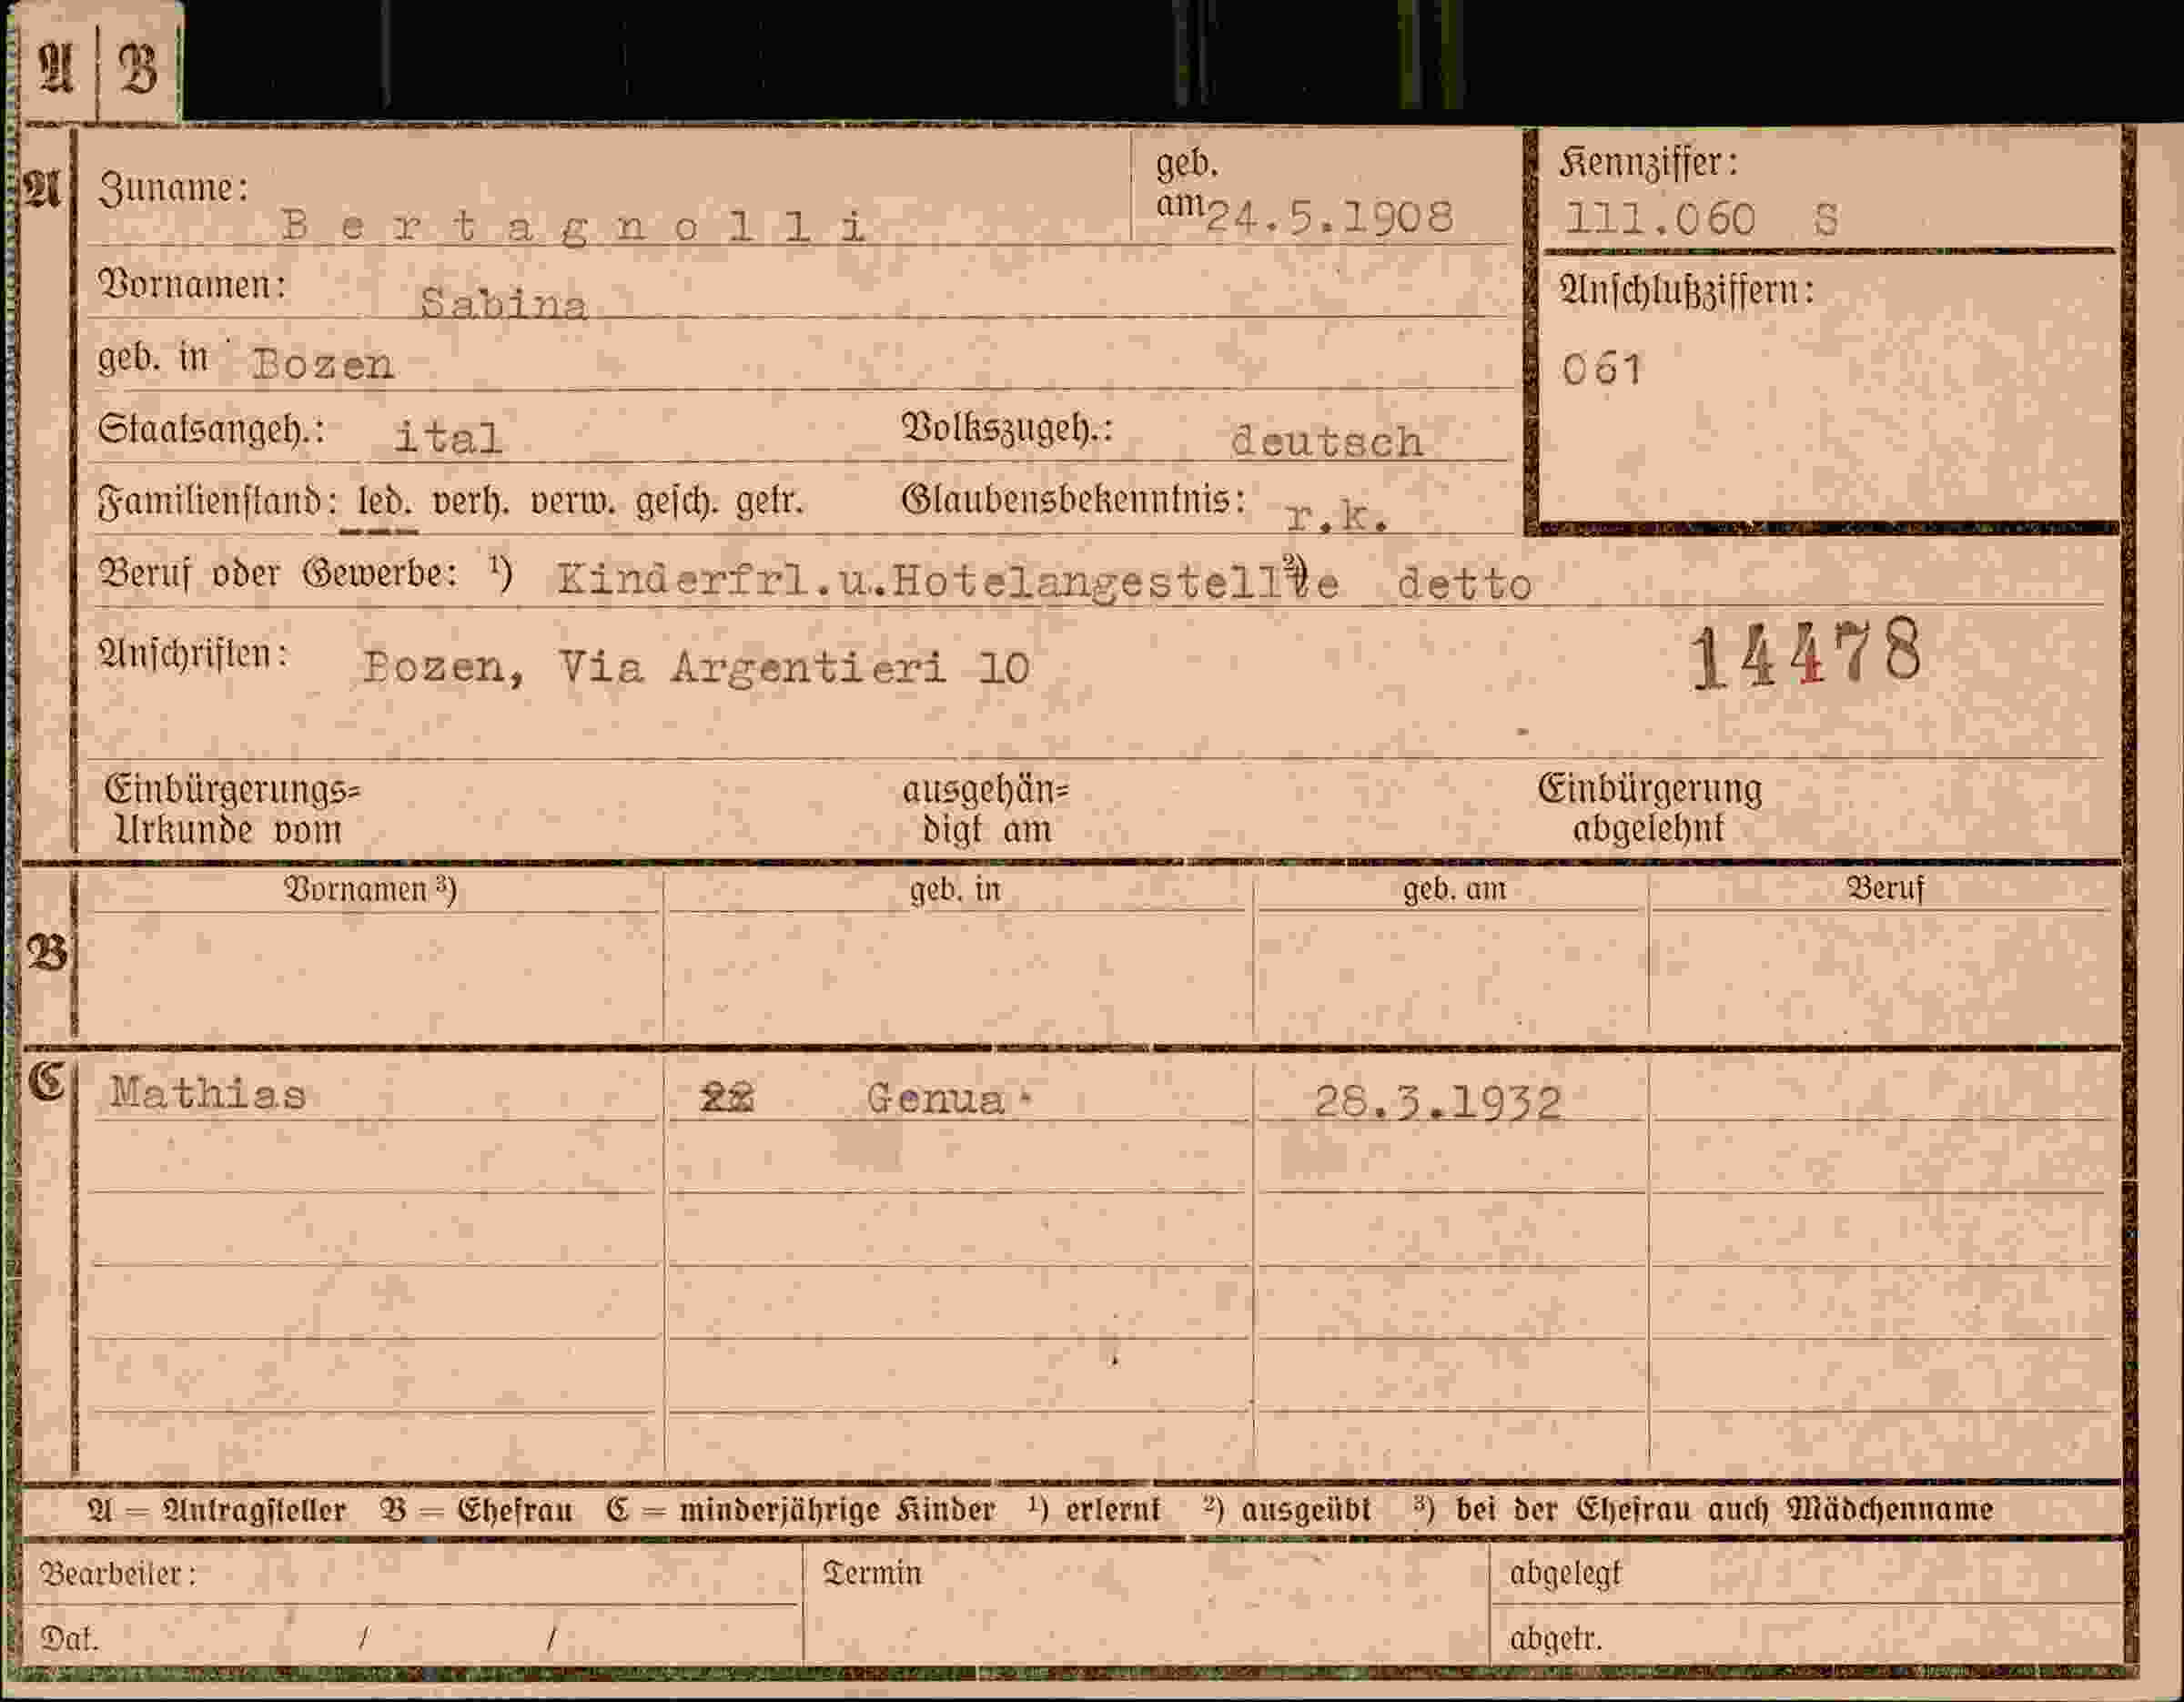 A | B
A Zuname: Bertagnolli geb. am 24.5.1908
Kennziffer:
111.060 S
Vornamen: Sabina
Anschlußziffern:
geb. in Bozen
061
Staatsangeh.: ital Volkszugeh.: deutsch
Familienstand: led. verh. verw. gesch. getr. Glaubensbekenntnis: r.k.
Beruf oder Gewerbe: ¹) Kinderfrl.u.Hotelangestellte ²) detto
Anschriften: Bozen, Via Argentieri 10
14478
Einbürgerungs= ausgehän= Einbürgerung
Urkunde vom digt am abgelehnt
Vornamen ³) geb. in geb. am Beruf
B
C Mathias 22 Genua 28.3.1932
A = Antragsteller B = Ehefrau C = minderjährige Kinder ¹) erlernt ²) ausgeübt ³) bei der Ehefrau auch Mädchenname
Bearbeiter: Termin abgelegt
Dat. / / abgetr.